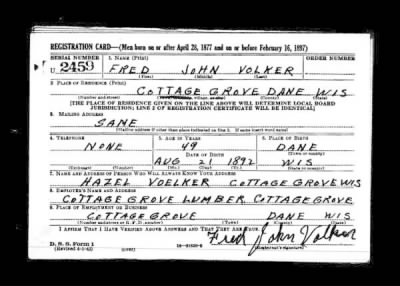 REGISTRATION CARD—(Men born on or after April 28, 1877 and on or before February 16, 1897)
SERIAL NUMBER 1. NAME (Print)
U 2459 FRED JOHN VOLKER
(First) (Middle) (Last)
2. PLACE OF RESIDENCE (Print)
COTTAGE GROVE DANE WIS
(Number and street) (Town, township, village, or city) (County) (State)
[THE PLACE OF RESIDENCE GIVEN ON THE LINE ABOVE WILL DETERMINE LOCAL BOARD
JURISDICTION; LINE 2 OF REGISTRATION CERTIFICATE WILL BE IDENTICAL]
3. MAILING ADDRESS
SAME
[Mailing address if other than place indicated on line 2. If same insert word same]
4. TELEPHONE 5. AGE IN YEARS 6. PLACE OF BIRTH
NONE 49 DANE
DATE OF BIRTH (Town or county)
AUG 21 1892 WIS
(Exchange) (Number) (Mo.) (Day) (Yr.) (State or country)
7. NAME AND ADDRESS OF PERSON WHO WILL ALWAYS KNOW YOUR ADDRESS
HAZEL VOELKER COTTAGE GROVE WIS
8. EMPLOYER'S NAME AND ADDRESS
COTTAGE GROVE LUMBER COTTAGE GROVE
9. PLACE OF EMPLOYMENT OR BUSINESS
COTTAGE GROVE DANE WIS
(Number and street or R. F. D. number) (Town) (County) (State)
I AFFIRM THAT I HAVE VERIFIED ABOVE ANSWERS AND THAT THEY ARE TRUE.
D. S. S. Form 1 Fred John Volker
(Revised 4-1-42) (over) (Registrant's signature)